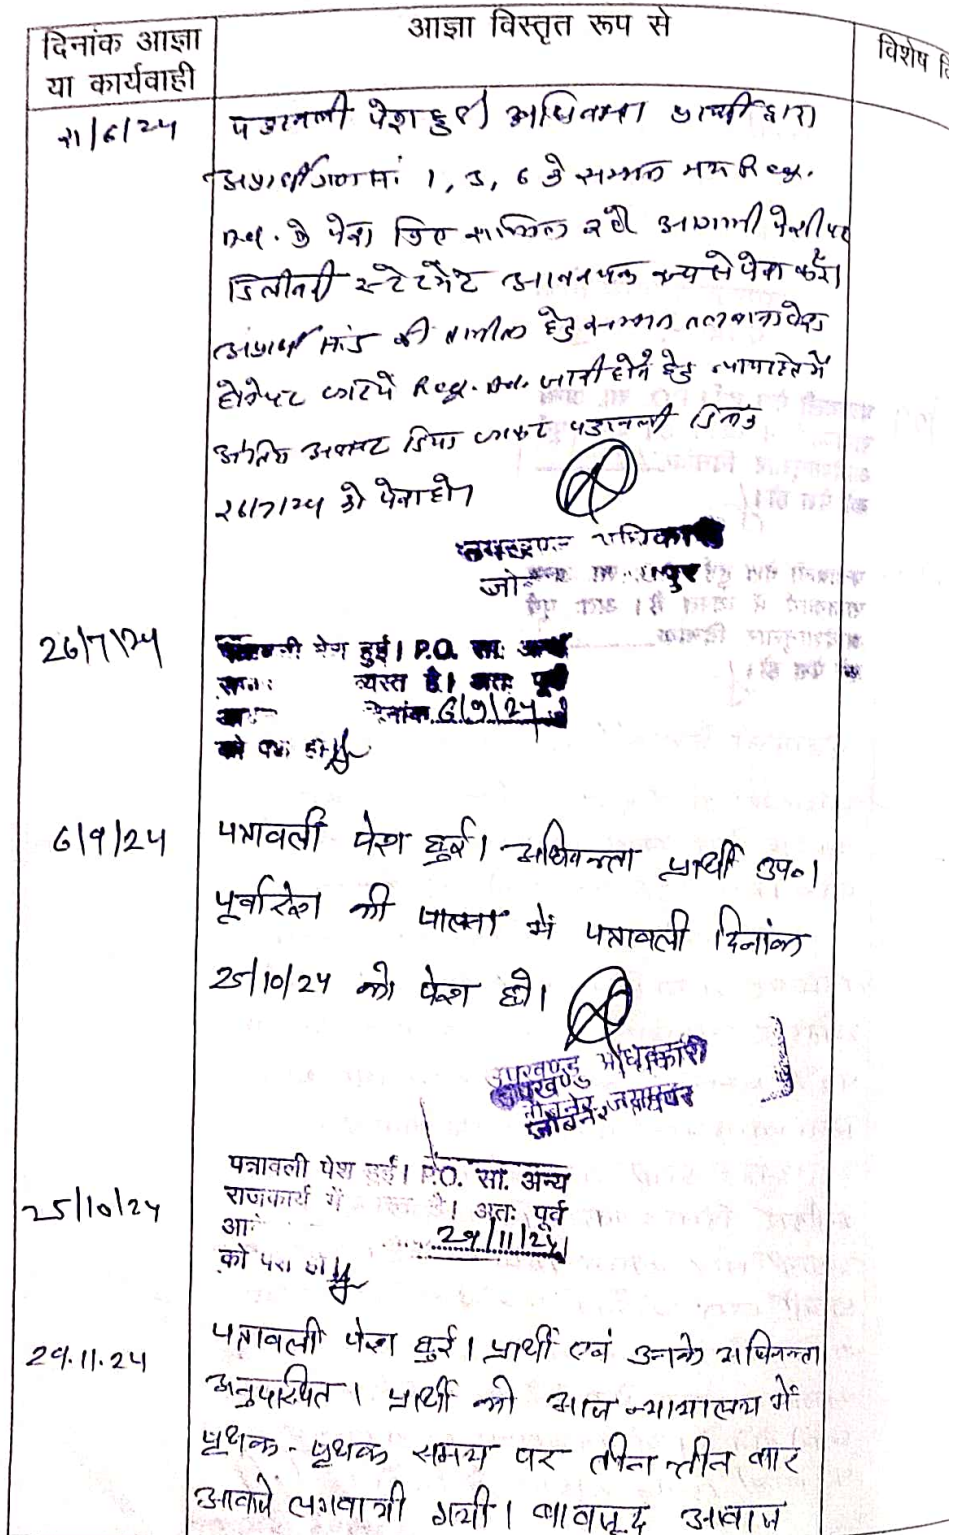 दिनांक आज्ञा
या कार्यवाही
आज्ञा विस्तृत रूप से
विशेष
पत्रावली पेश हुई। अधिवक्ता प्रार्थी द्वारा
अप्रार्थीगण सं. 1, 3, 6 के सम्मन मय Reg.
Ad. के पेश किए शामिल रहे आगामी पेशी पर
डिलीवरी स्टेटमेंट आवश्यक रूप से पेश करें।
अप्रार्थी की तामील हेतु सम्मन तलवाना पेश
Reg. Ad. जारी होने हेतु
अंतिम अवसर दिया जाकर पत्रावली दिनांक
26/7/24 को पेश हो।
उपखण्ड अधिकारी
26/7/24
पेश हुई। P.O. सा.
व्यस्त है। अतः पूर्व
6/9/24
6/9/24
पत्रावली पेश हुई। अधिवक्ता प्रार्थी उप०।
पूर्वादेश की पालना में पत्रावली दिनांक
25/10/24 को पेश हो।
उपखण्ड अधिकारी
उपखण्ड
जोबनेर
25/10/24
पत्रावली पेश हुई। P.O. सा. अन्य
राजकार्य में है। अतः पूर्व
29/11/24
को पेश हो
29.11.24
पत्रावली पेश हुई। प्रार्थी एवं उनके अधिवक्ता
अनुपस्थित। प्रार्थी को आज न्यायालय में
पृथक-पृथक समय पर तीन तीन बार
आवाजें लगवायी गयी। बावजूद आवाज